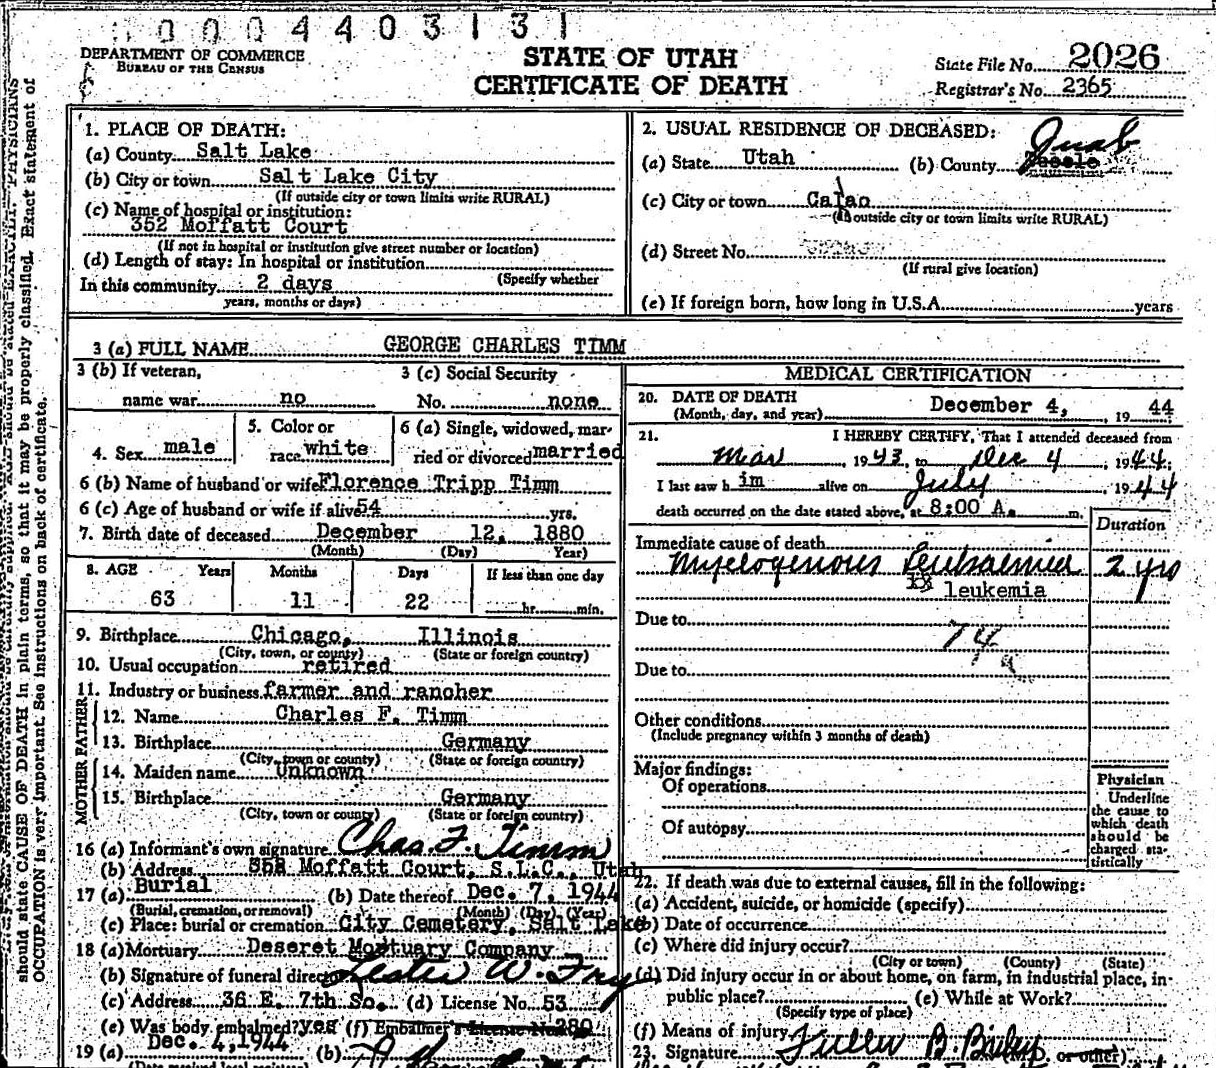 0004403131
DEPARTMENT OF COMMERCE
BUREAU OF THE CENSUS
STATE OF UTAH
CERTIFICATE OF DEATH
State File No. 2026
Registrar's No. 2365
should state CAUSE OF DEATH in plain terms, so that it may be properly classified. Exact statement of
OCCUPATION is very important. See instructions on back of certificate.
1. PLACE OF DEATH:
(a) County Salt Lake
(b) City or town Salt Lake City
(If outside city or town limits write RURAL)
(c) Name of hospital or institution:
352 Moffatt Court
(If not in hospital or institution give street number or location)
(d) Length of stay: In hospital or institution
(Specify whether
In this community 2 days
years, months or days)
2. USUAL RESIDENCE OF DECEASED:
Juab
(a) State Utah (b) County
(c) City or town
(If outside city or town limits write RURAL)
(d) Street No.
(If rural give location)
(e) If foreign born, how long in U.S.A. years
3 (a) FULL NAME GEORGE CHARLES TIMM
3 (b) If veteran,
name war no
3 (c) Social Security
No. none
4. Sex male
5. Color or
race white
6 (a) Single, widowed, mar-
ried or divorced married
6 (b) Name of husband or wife Florence Tripp Timm
6 (c) Age of husband or wife if alive 54 yrs.
7. Birth date of deceased December 12, 1880
(Month) (Day) Year)
8. AGE Years Months Days If less than one day
63 11 22 hr. min.
9. Birthplace Chicago, Illinois
(City, town, or county) (State or foreign country)
10. Usual occupation retired
11. Industry or business farmer and rancher
FATHER
12. Name Charles F. Timm
13. Birthplace Germany
(City, town or county) (State or foreign country)
MOTHER
14. Maiden name Unknown
15. Birthplace Germany
(City, town or county) (State or foreign country)
16 (a) Informant's own signature Chas. F. Timm
(b) Address 358 Moffatt Court, S.L.C., Utah
17 (a) Burial (b) Date thereof Dec. 7, 1944
(Burial, cremation, or removal) (Month) (Day) (Year)
(c) Place: burial or cremation City Cemetery, Salt Lake
18 (a) Mortuary Deseret Mortuary Company
(b) Signature of funeral director Lester W. Fry
(c) Address 36 E. 7th So. (d) License No. 53
(e) Was body embalmed? yes (f) Embalmer's License No. 280
19 (a) Dec. 4, 1944 (b)
(Date received local registrar)
MEDICAL CERTIFICATION
20. DATE OF DEATH
(Month, day, and year) December 4, , 19 44
21. I HEREBY CERTIFY, That I attended deceased from
Mar , 1943, to Dec 4 , 1944
I last saw h im alive on July , 1944
death occurred on the date stated above, at 8:00 A. m.
Duration
Immediate cause of death
Myelogenious Leukaemia 2 yrs
leukemia
Due to
74a
Due to
Other conditions
(Include pregnancy within 3 months of death)
Major findings:
Of operations
Of autopsy
Physician
Underline
the cause to
which death
should be
charged sta-
tistically
22. If death was due to external causes, fill in the following:
(a) Accident, suicide, or homicide (specify)
(b) Date of occurrence
(c) Where did injury occur?
(City or town) (County) (State)
(d) Did injury occur in or about home, on farm, in industrial place, in-
public place? (e) While at Work?
(Specify type of place)
(f) Means of injury
23. Signature Fuller B. Bailey or other)